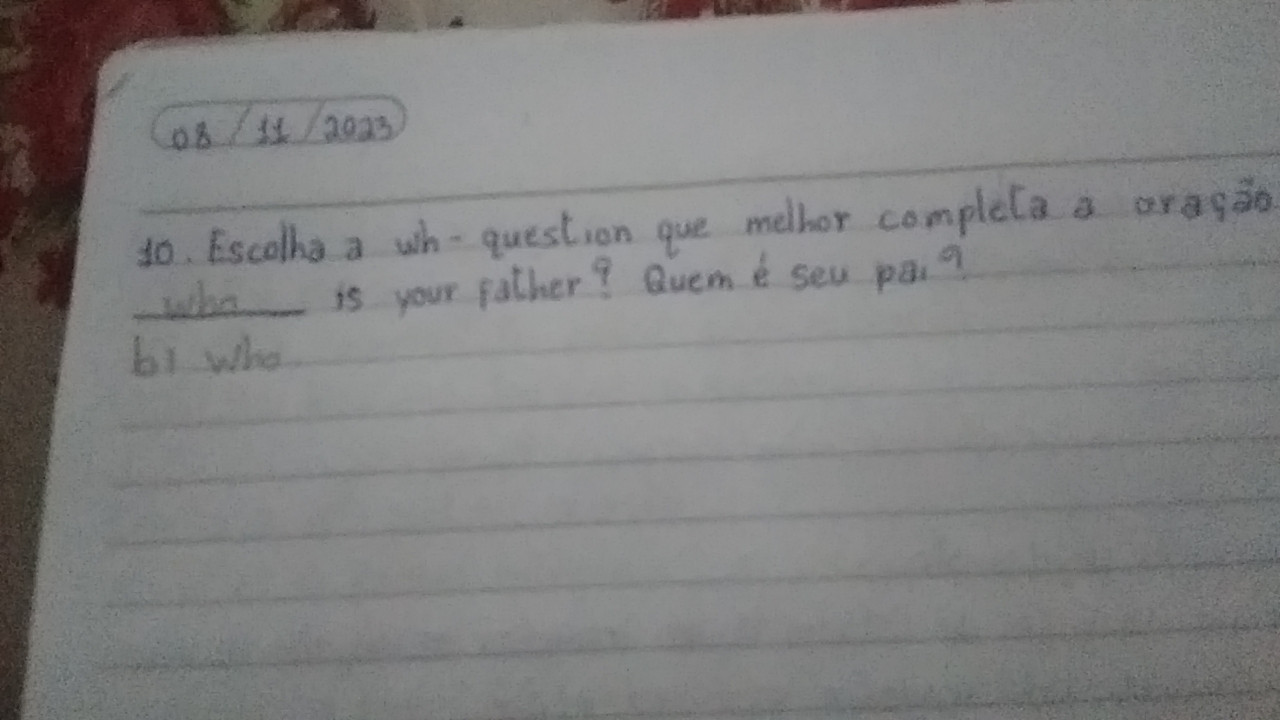 08/11/2023
10. Escolha a wh-question que melhor completa a oração.
who is your father? Quem é seu pai?
b) who